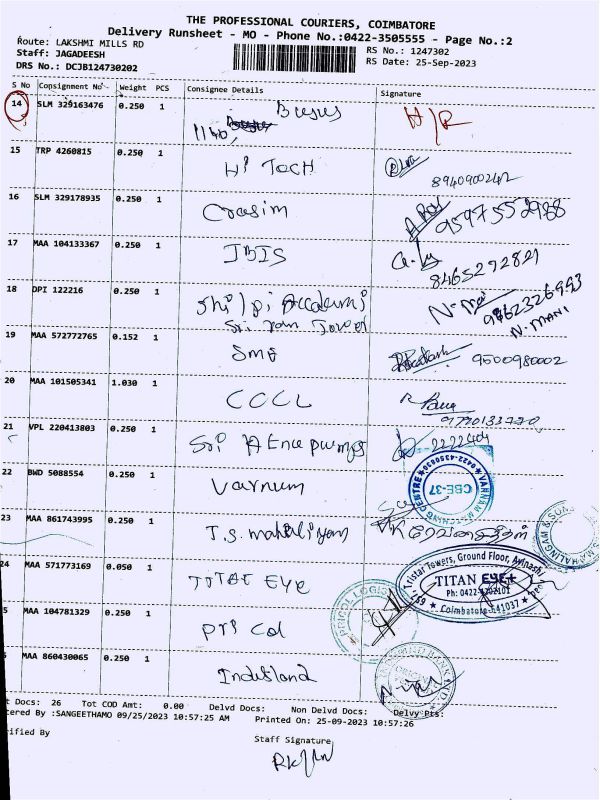 THE PROFESSIONAL COURIERS, COIMBATORE
Delivery Runsheet - MO - Phone No.:0422-3505555 - Page No.:2
Route: LAKSHMI MILLS RD
RS No.: 1247302
Staff: JAGADEESH
RS Date: 25-Sep-2023
DRS No.: DCJB124730202
S No Consignment No Weight PCS Consignee Details Signature
14 SLM 329163476 0.250 1
H/R
15 TRP 4260815 0.250 1
Hi TOCH
8940900242
16 SLM 329178935 0.250 1
Crasim
9597552988
17 MAA 104133367 0.250 1
IBIS
8465272821
18 DPI 122216 0.250 1
Shilpi
N-Mani
9962326993
N. MANI
Sri ram Tower
19 MAA 572772765 0.152 1
Sme
9500980002
20 MAA 101505341 1.030 1
CCCL
21 VPL 220413803 0.250 1
Sri pumps
2222404
22 BWD 5088554 0.250 1
Varnum
VARNAM MATCHING CENTRE
0422-4350830
CBE-37
23 MAA 861743995 0.250 1
T.S. mahaliyam
MAHALINGAM & SONS
24 MAA 571773169 0.050 1
TITAN EYE
657, Tristar Towers, Ground Floor, Avinash
TITAN EYE+
Ph: 0422-4202101
Coimbatore-641037
5 MAA 104781329 0.250 1
Col
PRICOL LOGIS
MAA 860430065 0.250 1
Indusland
INDUSIND BANK
t Docs: 26 Tot COD Amt: 0.00 Delvd Docs: Non Delvd Docs: Delvy Pts:
tered By :SANGEETHAMO 09/25/2023 10:57:25 AM Printed On: 25-09-2023 10:57:26
rified By
Staff Signature